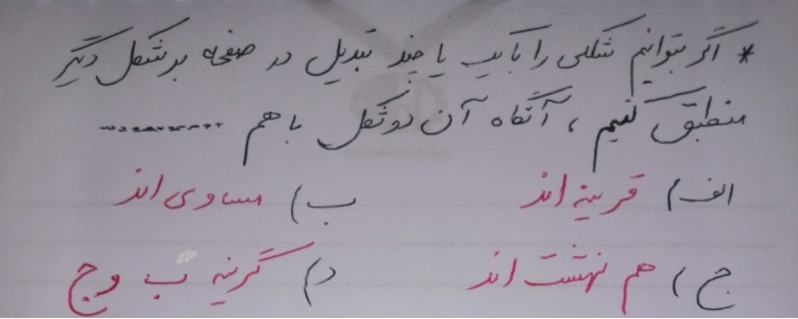 * اگر بتوانیم شکلی را با یک یا چند تبدیل در صفحه بر شکل دیگر
منطبق کنیم ، آنگاه آن دو شکل با هم ............
الف) قرینه اند ب) مساوی اند
ج) هم نهشت اند د) گزینه ب و ج